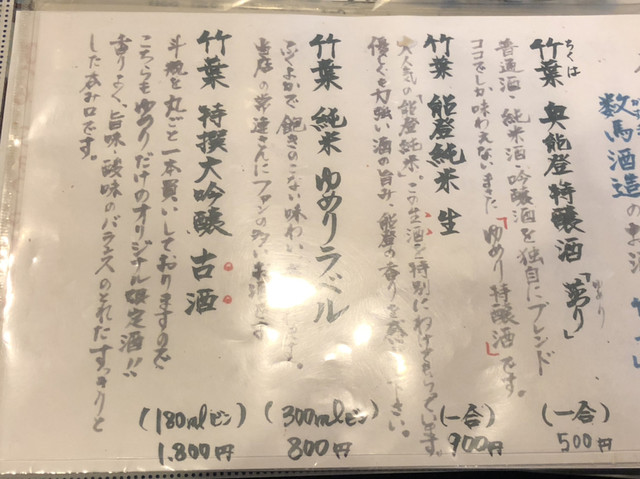 数馬酒造のお酒
ちくは
竹葉 奥能登特醸酒「夢り」
ゆめり
普通酒・純米酒・吟醸酒を独自にブレンド
ココでしか味わえない、まさに「ゆめり特醸酒」です。
(一合)
500円
竹葉 能登純米 生
大人気の「能登純米」。この生酒を特別にわけてもらっています。
優しくも力強い酒の旨み、能登の香りを感じて下さい。
(一合)
900円
竹葉 純米 ゆめりラベル
ふくよかで飽きのこない味わい
当店の常連さんにファンの多いお酒です
(300mlビン)
800円
竹葉 特撰大吟醸 古酒
斗瓶を丸ごと一本買いしておりますので
こちらもゆめりだけのオリジナル限定酒!!
香りよく、旨味、酸味のバランスのとれたすっきりと
した呑み口です。
(180mlビン)
1.800円